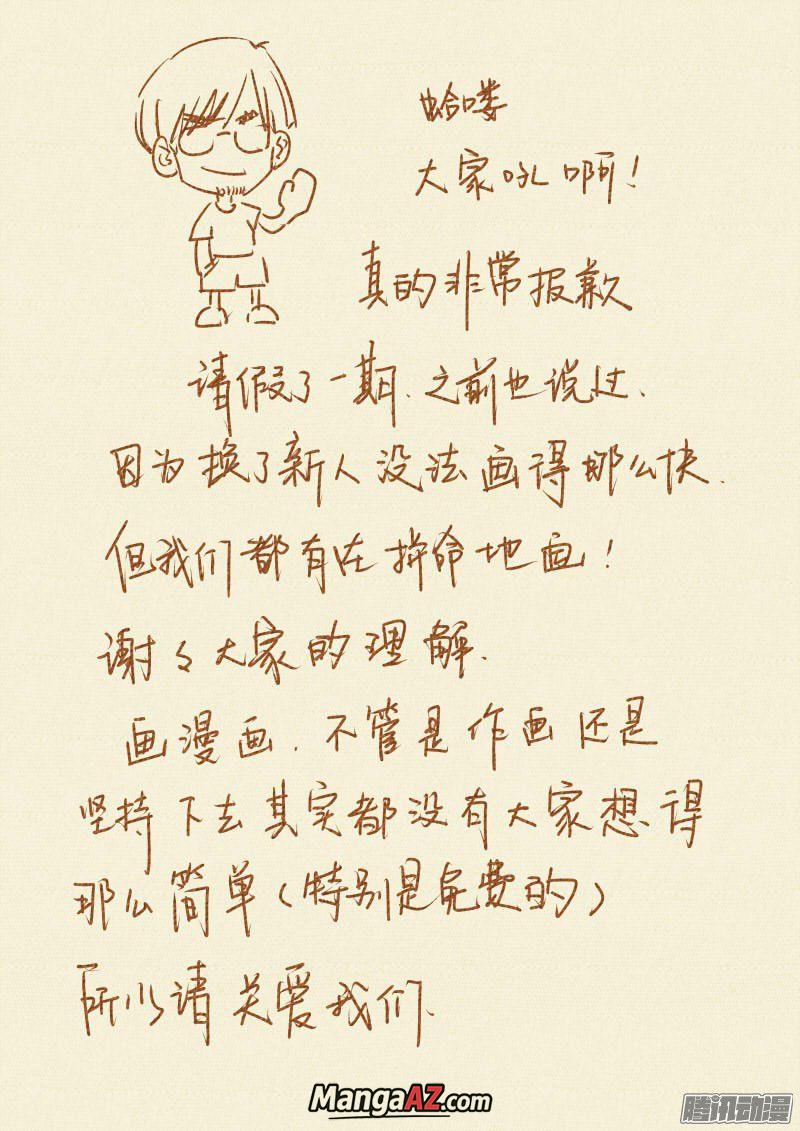 蛤喽
大家吼啊!
真的非常报歉
请假了一期.之前也说过.
因为换了新人没法画得那么快.
但我们都有在拼命地画!
谢々大家的理解.
画漫画.不管是作画还是
坚持下去其实都没有大家想得
那么简单(特别是免费的)
所以请关爱我们.
MangaAZ.com
腾讯动漫